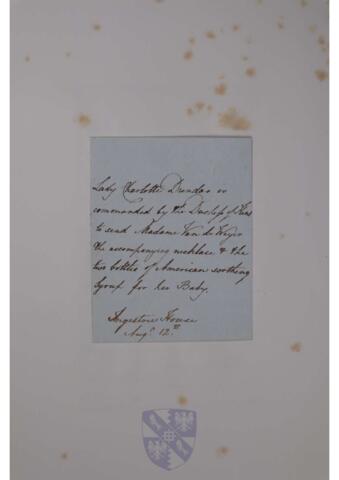 Lady Charlotte Dundas is
commanded by the Duchess of Kent
to send Madame Van de Weyer
the accompanying necklace & the
two bottles of American soothing
Syrup for her Baby.
Ingestre House
Augt 12th